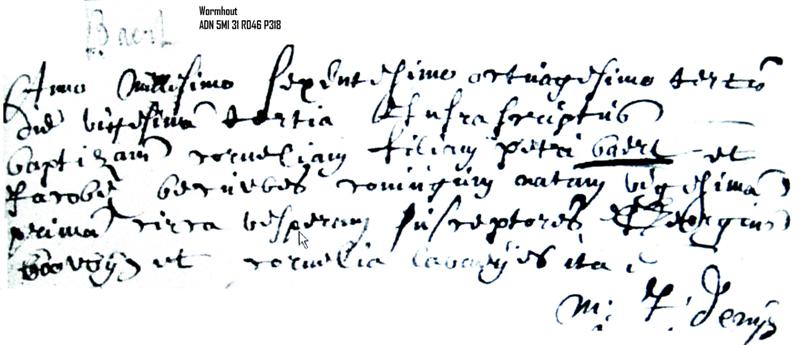 Wormhout
ADN 5MI 31 R046 P318
Baert
Anno Millesimo sexcentesimo octuagesimo tertio
die vigesima tertia Infrascriptus
baptizavi corneliam filiam petri baert et
Jacobæ coniugum natam vigesima
prima circa vesperam susceptores Georgius
et cornelia ita
M: J: Denys